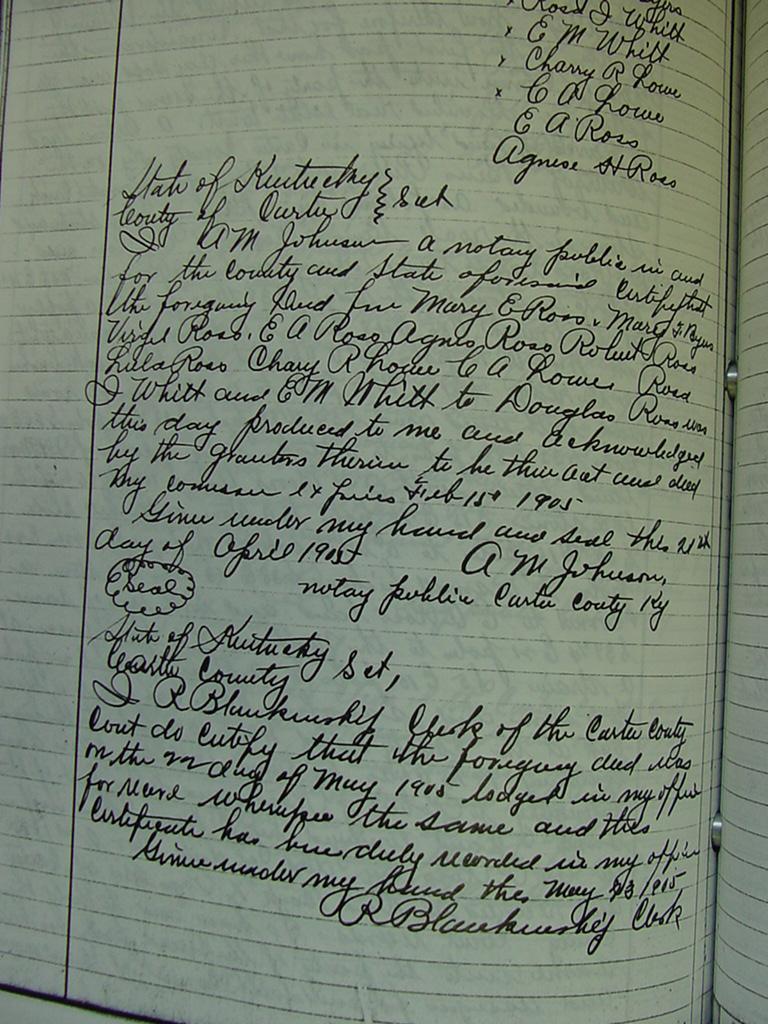 Rosa I Whitt
x E M Whitt
x Charry R Lowe
x C A Lowe
E A Ross
Agnese H Ross
State of Kentucky }
County of Carter } Sct
I A M Johnson a notary public in and
for the county and State aforesaid Certify that
the foregoing Deed from Mary E Ross, Mary F. Byers
Virgil Ross, E A Ross Agnes Ross Robert Ross
Lula Ross Chary R Lowe C A Lowe Rosa
I Whitt and E M Whitt to Douglas Ross was
this day produced to me and acknowledged
by the grantors therein to be thier act and deed
My comission expires Feb 15th 1905
Given under my hand and seal this 21st
day of April 1905 A M Johnson,
Seal notay public Carter couty Ky
State of Kentucky
Carter County Sct,
I R Blankenship Clerk of the Carter couty
Cout do certify that the foregoing deed was
on the 22 day of May 1905 lodged in my office
for record whereupon the same and this
Certificate has been duly recorded in my office
Given under my hand this May 23 1905
R Blankenship Clerk